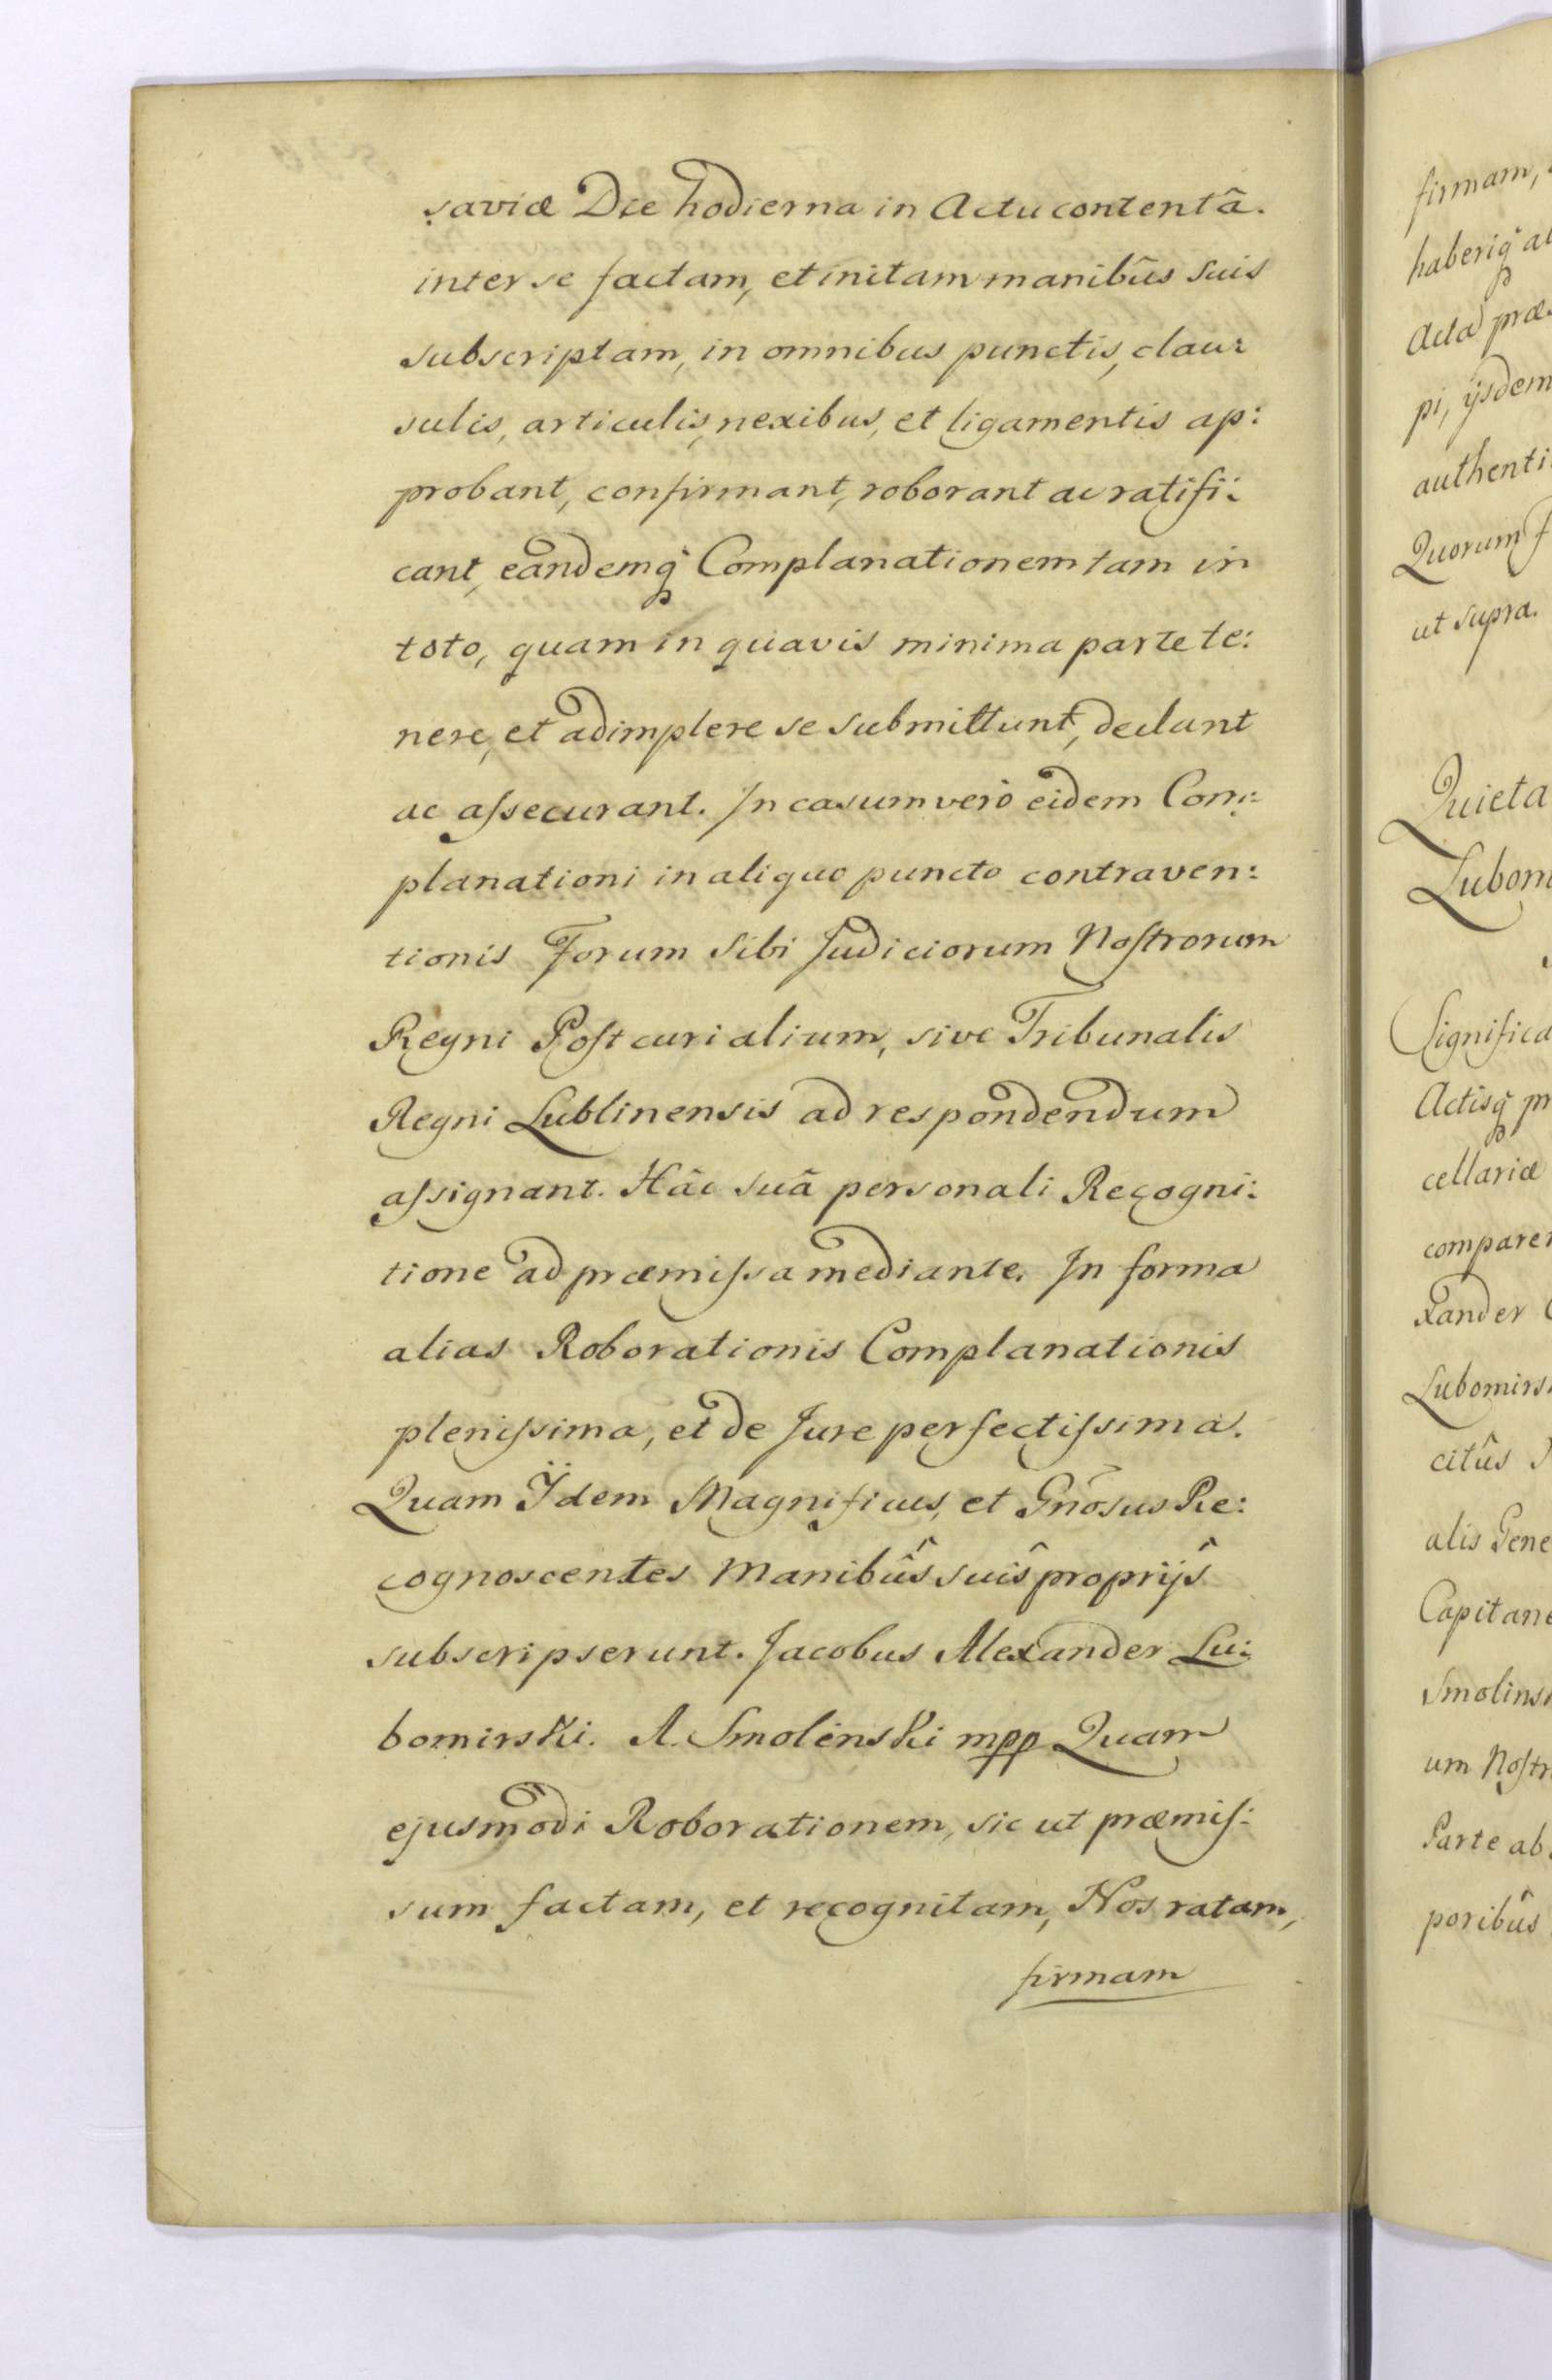 saviæ Die hodierna in Actu contentâ.
inter se factam, et initam manibûs suis
subscriptam, in omnibus punctis, clau:
sulis, articulis, nexibus, et ligamentis ap:
probant, confirmant, roborant ac ratifi:
cant, eandemq̀ Complanationem tam in
toto, quam in quavis minima parte te:
nere, et adimplere se submittunt, declant
ac aſsecurant. In casum verò eidem Com:
planationi in aliquo puncto contraven:
tionis Forum sibi Judiciorum Noſtrorum
Regni Poſtcurialium, sive Tribunalis
Regni Lublinensis ad respondendum
aſsignant. Hâc suâ personali Recogni:
tione ad præmiſsa mediante. In forma
alias Roborationis Complanationis
pleniſsima, et de Jure perfectiſsima.
Quam Ÿdem Magnificus, et Gnõsus Re:
cognoscentes Manibûs suîs proprijŝ
subscripserunt. Jacobus Alexander Lu:
bomirski. A. Smolenski mpp Quam
ejusmodi Roborationem, sic ut præmiſ:
sum factam, et recognitam, Nos ratam,
firmam
firmam,
haberiq̀
Acta præ
pi, ijsdem
authenti
Quorum
ut supra.
Quieta
Lubom
Significa
Actisq̀
cellariæ
compare
xander
Lubomirs
citûs
alis Gene
Capitane
Smolins
um Noſtr
Parte ab
poribûs